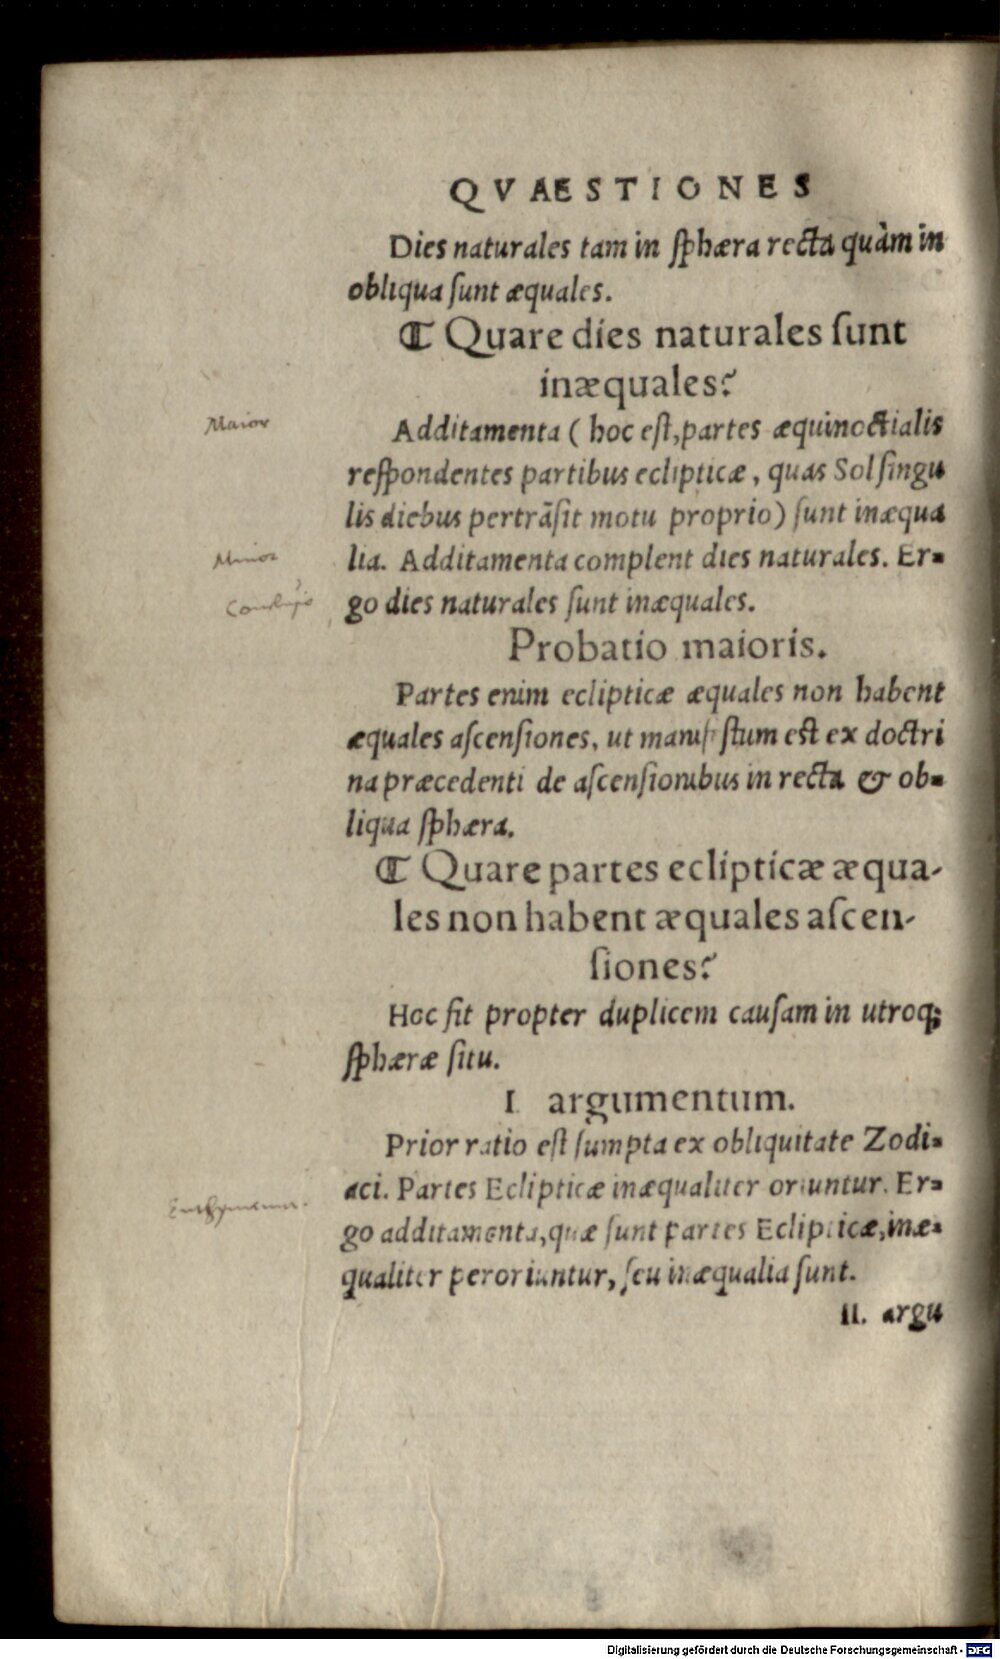 QVAESTIONES
Dies naturales tam in ſphæra recta quàm in
obliqua ſunt æquales.
❡ Quare dies naturales ſunt
inæquales?
Maior
Additamenta ( hoc eſt, partes æquinoctialis
reſpondentes partibus eclipticæ, quas Sol ſingu
lis diebus pertrãſit motu proprio) ſunt inæqua
Minor
lia. Additamenta complent dies naturales. Er-
Conclusio
go dies naturales ſunt inæquales.
Probatio maioris.
Partes enim eclipticæ æquales non habent
æquales aſcenſiones, ut manifeſtum eſt ex doctri
na præcedenti de aſcenſionibus in recta & ob-
liqua ſphæra.
❡ Quare partes eclipticæ æqua-
les non habent æquales aſcen-
ſiones?
Hoc fit propter duplicem cauſam in utroq;
ſphæræ ſitu.
I argumentum.
Prior ratio eſt ſumpta ex obliquitate Zodi-
aci. Partes Eclipticæ inæqualiter oriuntur. Er-
Enthymema.
go additamenta, quæ ſunt partes Eclipticæ, inæ-
qualiter peroriuntur, ſeu inæqualia ſunt.
II. argu
Digitalisierung gefördert durch die Deutsche Forschungsgemeinschaft - DFG